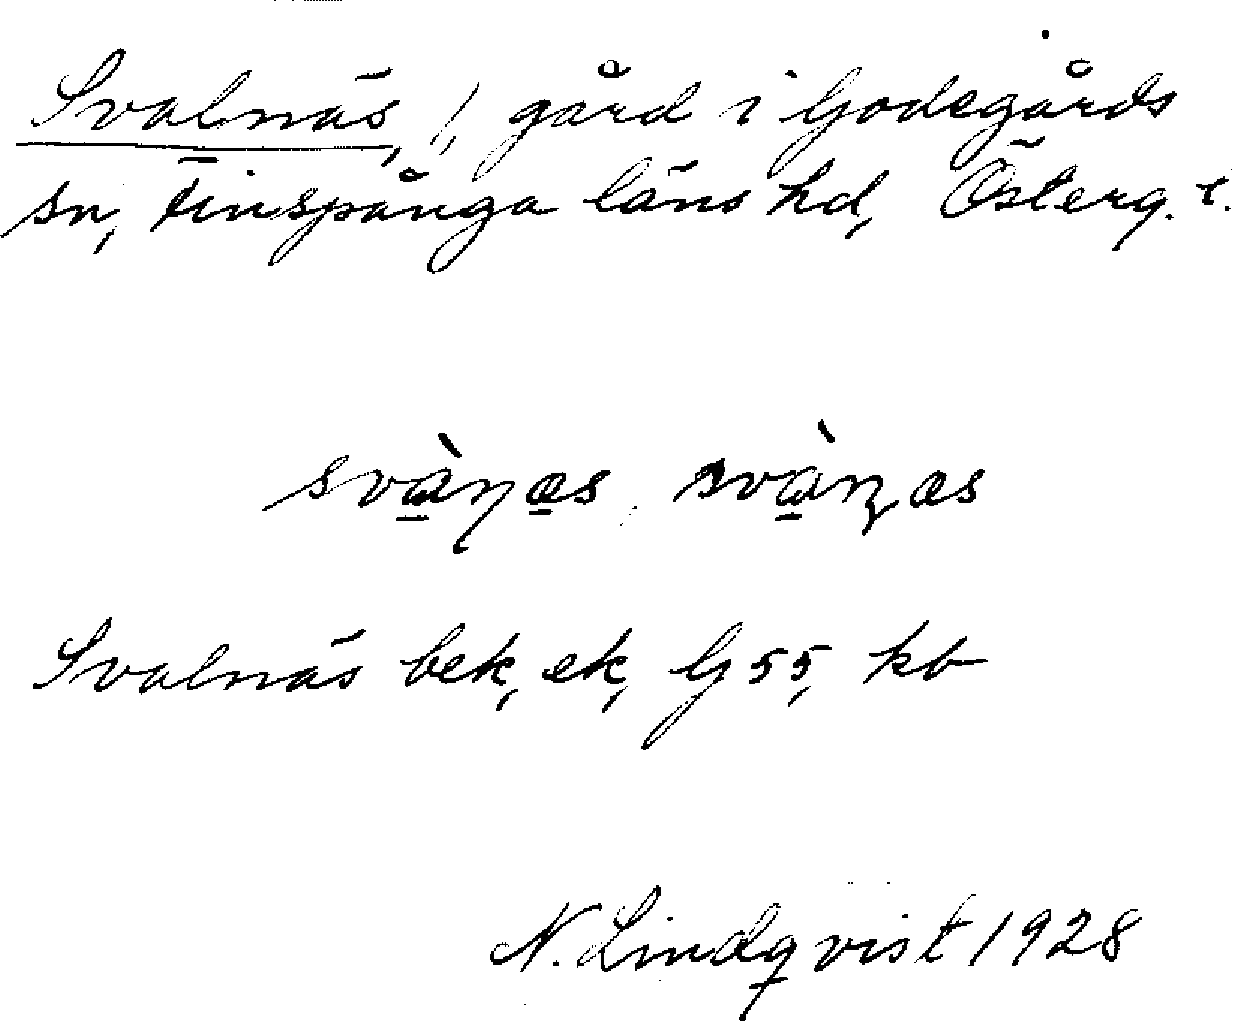 Svalnäs, !, gård i Godegårds
sn, Finspånga läns hd, Österg. l.
svàŋas, svàɳas
Svalnäs bek, ek, G 55, kb
N. Lindqvist 1928